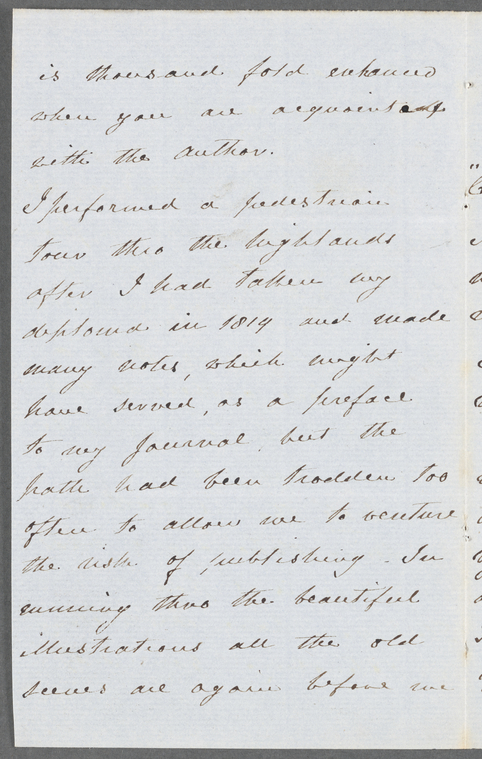 is thousand fold enhanced
when you are acquainted
with the Author.
I performed a pedestrian
tour thro the highlands
after I had taken my
diploma in 1819 and made
many notes, which might
have served, as a preface
to my Journal. but the
path had been trodden too
often to allow me to venture
the risk of publishing. In
running thro the beautiful
illustrations all the old
scenes are again before me